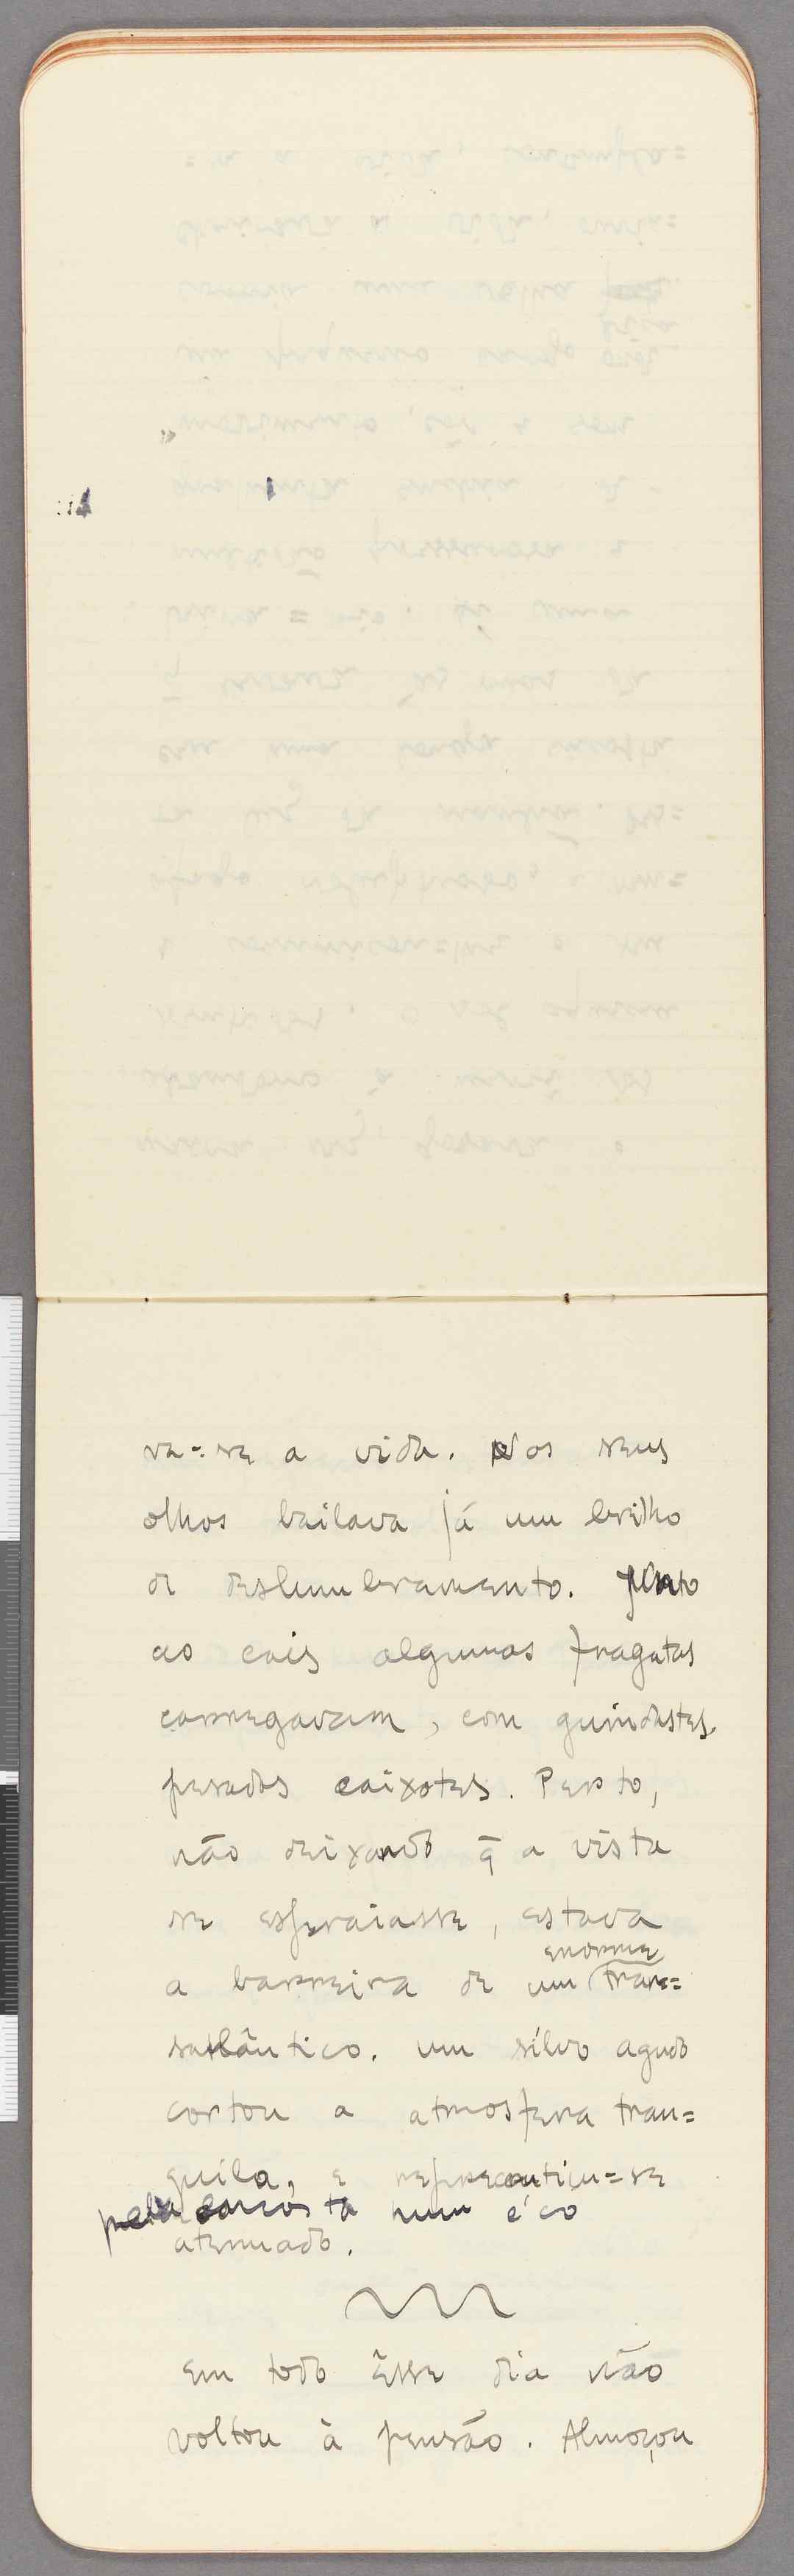 va-se a vida. Nos seus
olhos bailava já um brilho
de deslumbramento. Junto
ao cais algumas fragatas
carregavam, com guindastes,
pesados caixotes. Perto,
não deixando q̄ a vista
se espraiasse, estava
enorme
a barreira de um tran=
satlântico. um silvo agudo
cortou a atmosfera tran=
quila, e repercutiu=se
pela num éco
atenuado.
Em todo êsse dia não
voltou à pensão. Almoçou